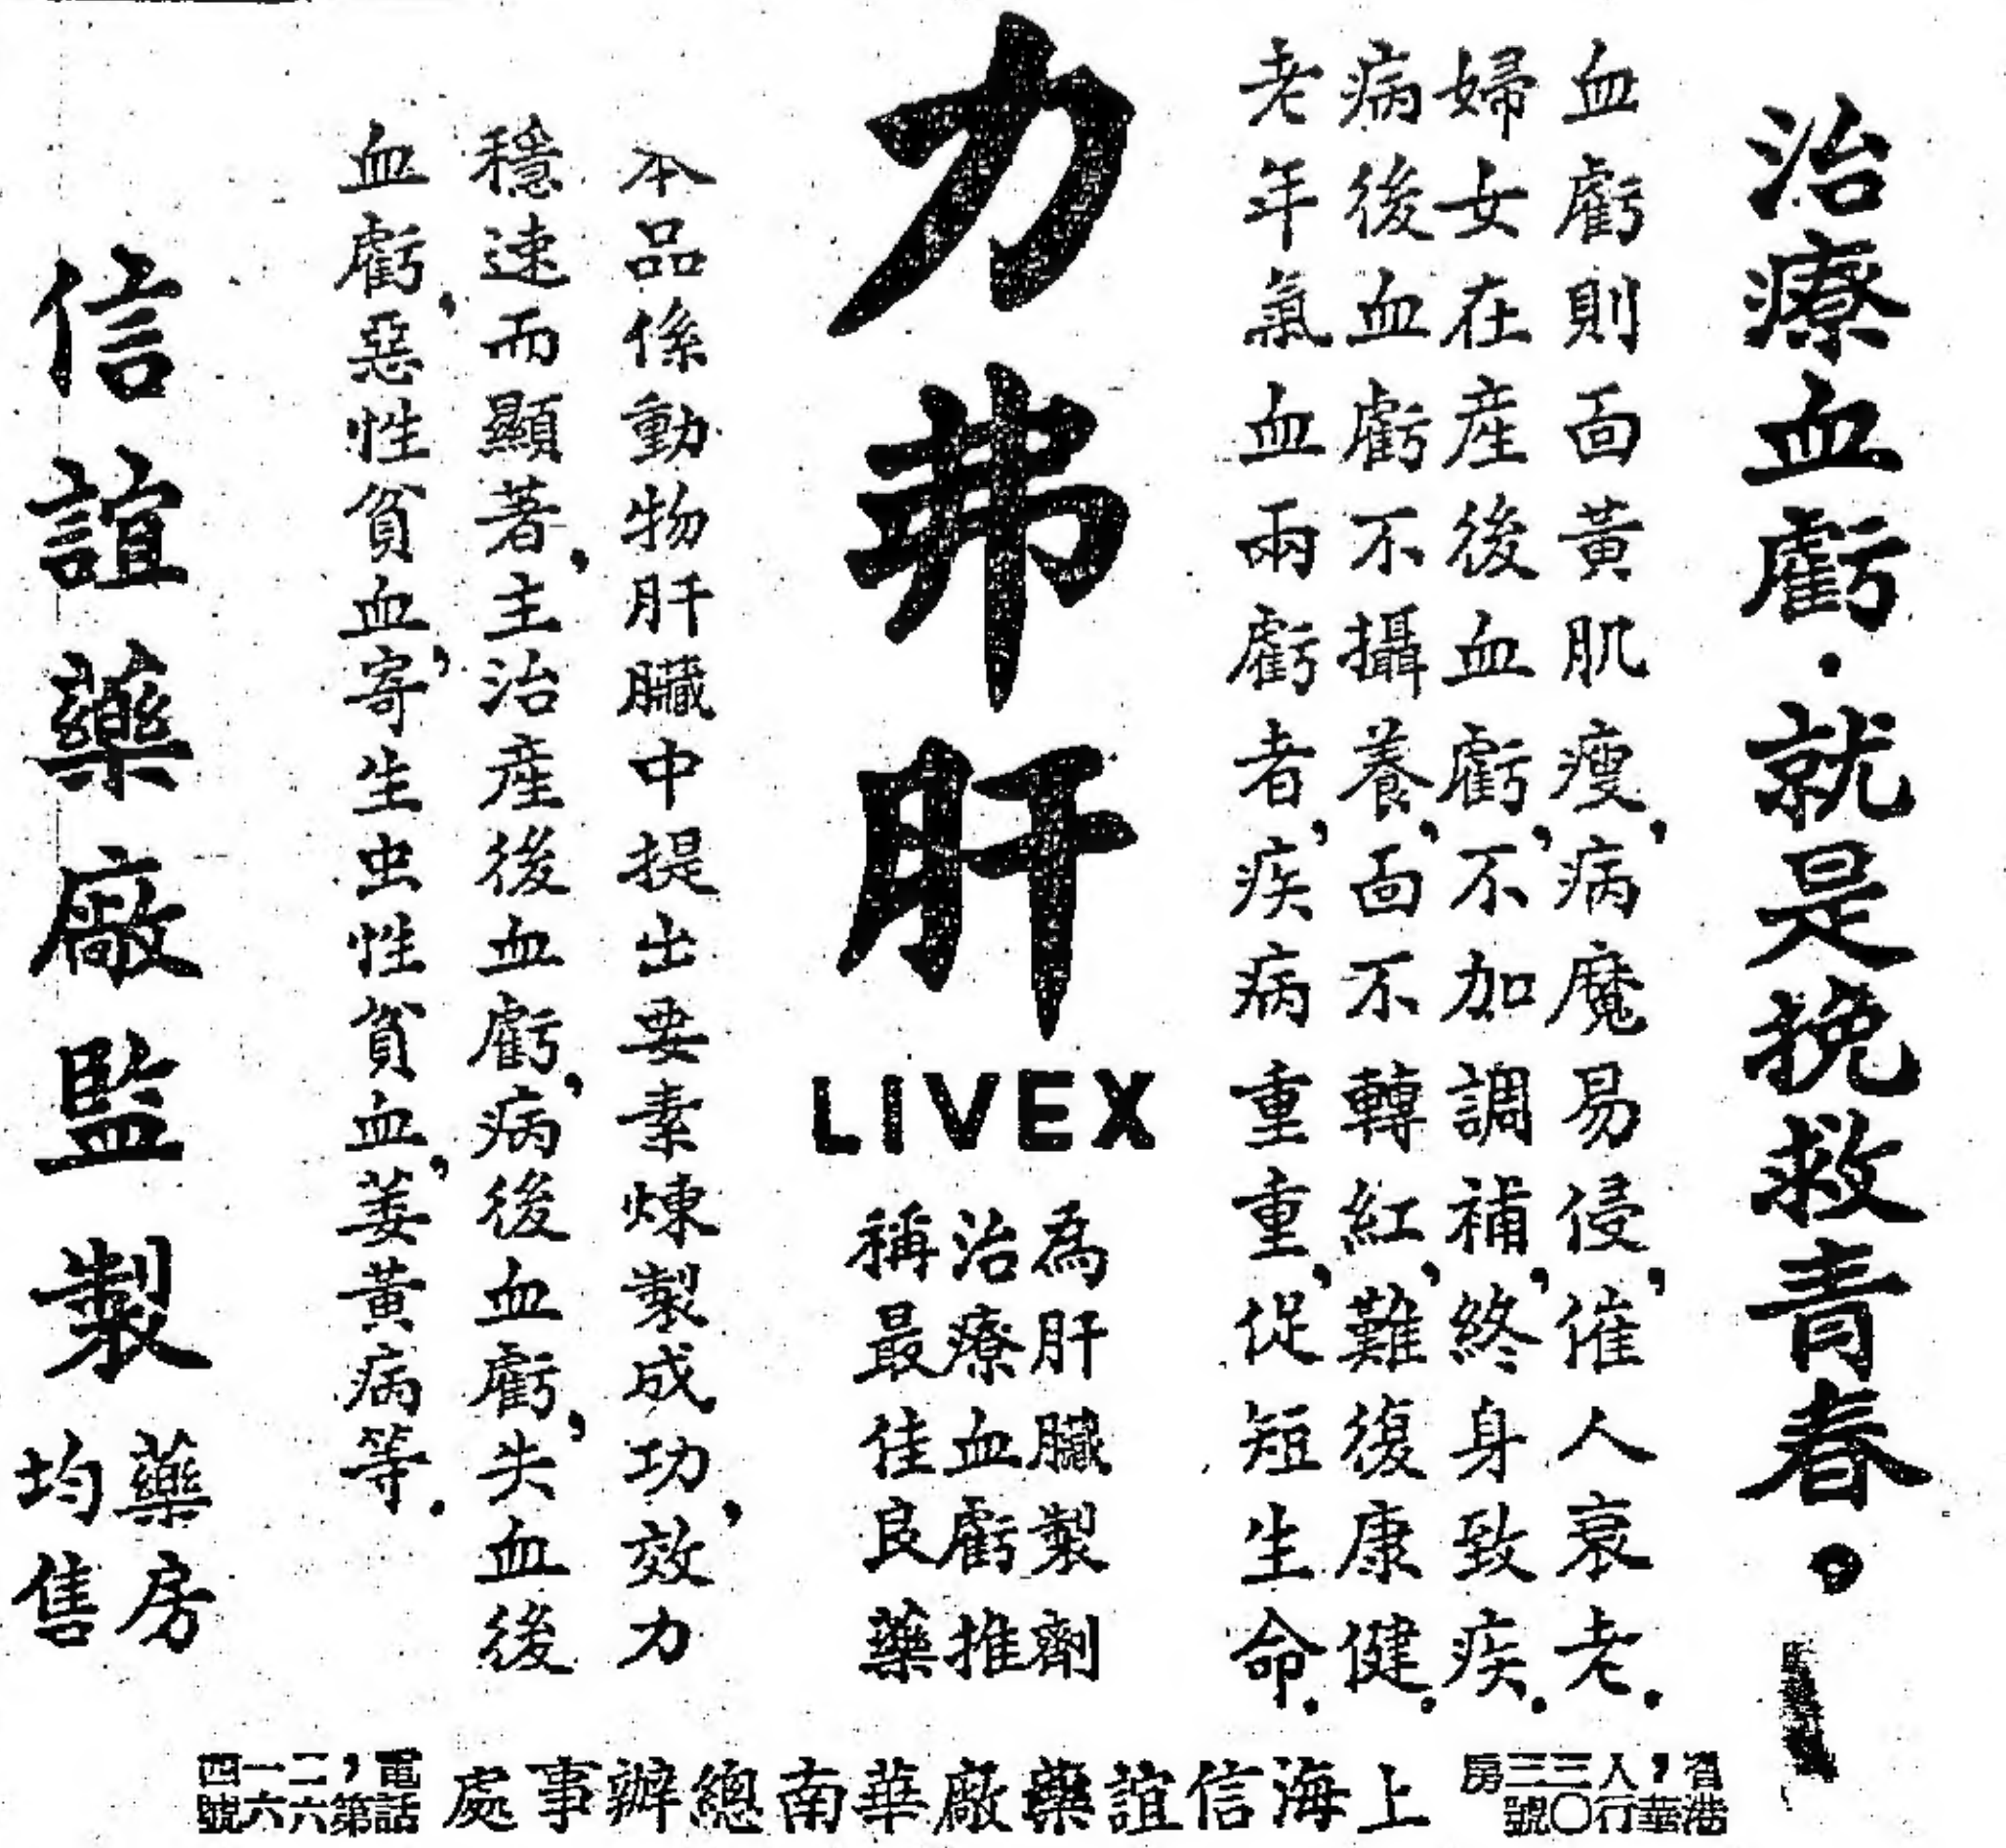 治療血虧·就是挽救青春。
血虧則面黃肌瘦,病魔易侵,催人衰老.
婦女在產後血虧,不加調補,終身致疾.
病後血虧不攝養,面不轉紅,難復康健.
老年氣血兩虧者,疾病重重,促短生命.
力弗肝
LIVEX
為肝臟製劑
治療血虧推
稱最佳良藥
本品係動物肝臟中提出要素煉製成功,效力
穩速而顯著,主治產後血虧,病後血虧,失血後
血虧,惡性貧血,寄生虫性貧血,萎黃病等.
信誼藥廠監製
藥房
均售
香港,華人行三〇三號房
上海信誼藥廠華南總辦事處
電話,第二六一六四號